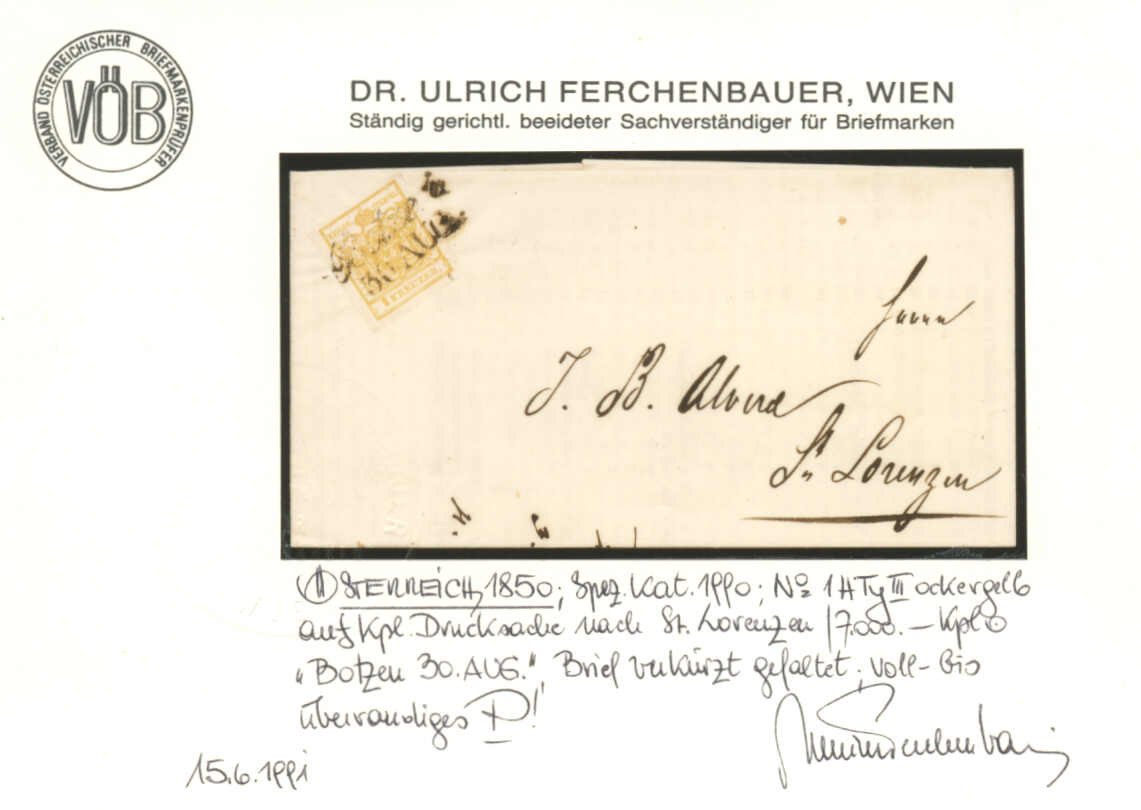 VERBAND ÖSTERREICHISCHER BRIEFMARKENPRÜFER
VÖB
DR. ULRICH FERCHENBAUER, WIEN
Ständig gerichtl. beeideter Sachverständiger für Briefmarken
30 AUG.
1 KREUZER
Herrn
J. B. Alverà
St. Lorenzen
ÖSTERREICH, 1850; Spez. Kat. 1990; No 1H Ty III ockergelb
auf kpl. Drucksache nach St. Lorenzen / 7.000.— kpl
"Botzen 30. AUG.", Brief verkürzt gefaltet; voll-bis
überrandiges P!
15.6.1991